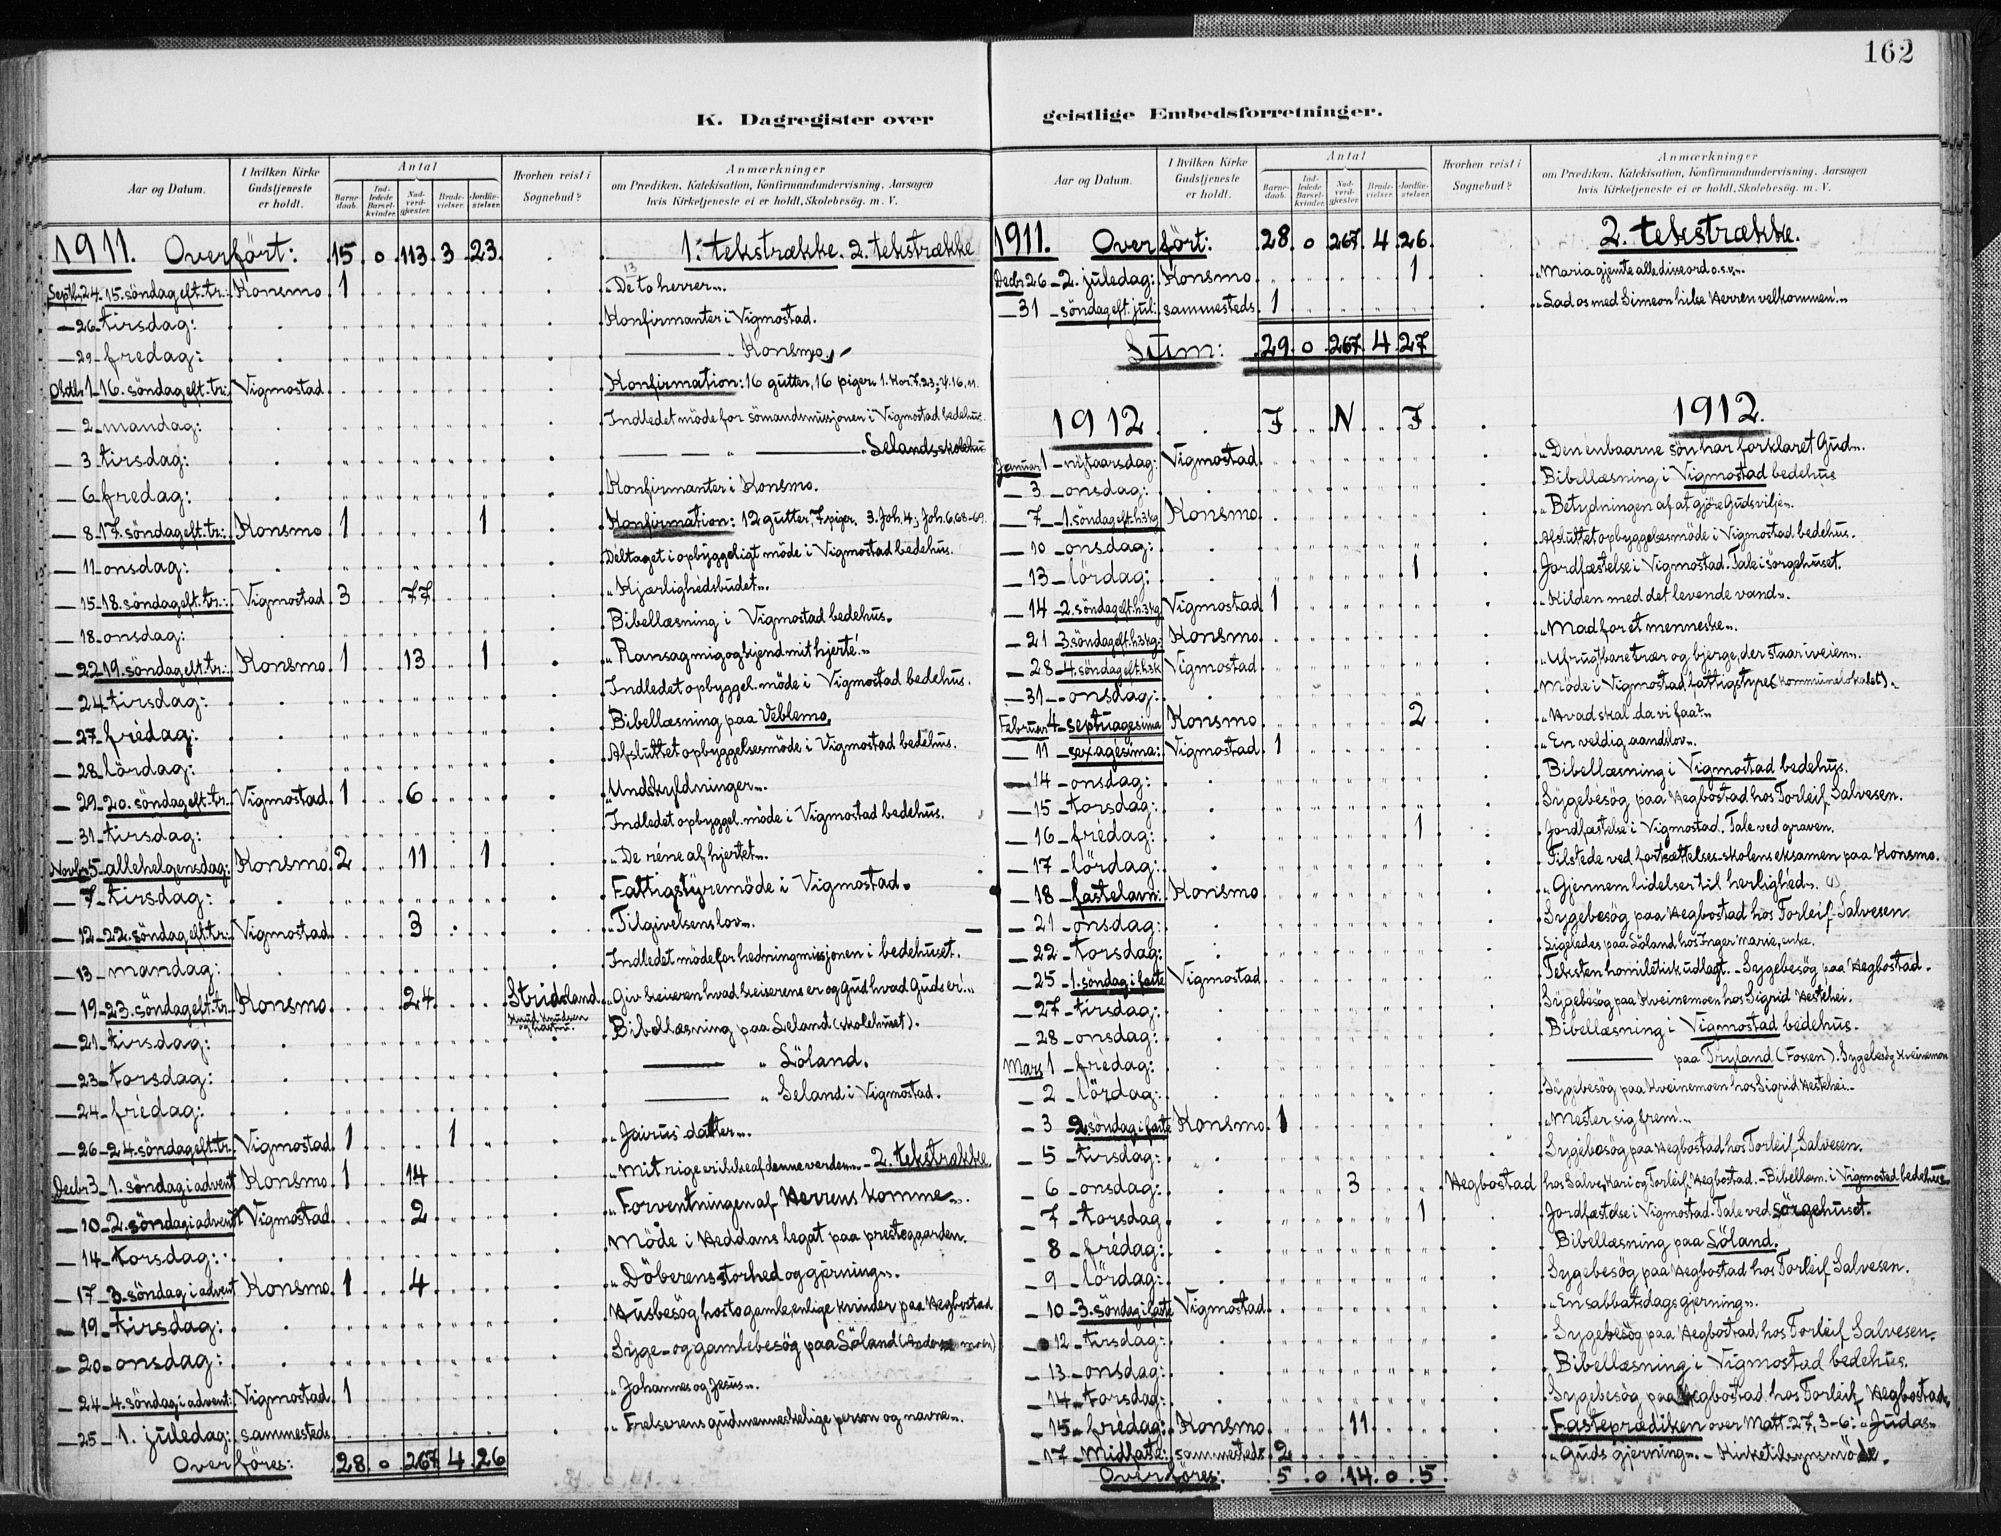 162
K. Dagregister over
Aar og Datum.
I hvilken Kirke Gudstjeneste er holdt.
Antal
Barnedaab.
Indledede Barselkvinder.
Nadverdgjester.
Brudevielser.
Jordfæstelser.
Hvorhen reist i Sognebud?
Anmærkninger
om Prædiken, Katekisation, Konfirmandundervisning, Aarsagen
hvis Kirketjeneste ei er holdt, Skolebesøg. m. V.
1911. Overført: 15 0 113 3 23 1. tekstrække. 2. tekstrække
Septbr 24 15. søndag eft. tr.: Konsmo 1 "De to herrer".
26 tirsdag: Konfirmanter i Vigmostad.
29 fredag: — " Konsmo.
Oktbr 1 16. søndag eft. tr. Vigmostad Konfirmation: 16 gutter, 16 piger. 1. Kor. 7,23; 4. 16, 11.
2 mandag: Indledet møde for sømandsmissjonen i Vigmostad bedehus.
3 tirsdag: — " — Selands skolehus
6 fredag: Konfirmanter i Konsmo.
8 17. søndag eft. tr.: Konsmo 1 1 Konfirmation: 12 gutter, 7 piger. 3. Joh. 4; Joh. 6,68-69.
11 onsdag: Deltaget i opbyggeligt møde i Vigmostad bedehus.
15 18. søndag eft. tr.: Vigmostad 3 77 "Kjærlighedsbudet".
18 onsdag: Bibellæsning i Vigmostad bedehus.
22 19. søndag eft. tr.: Konsmo 1 13 1 "Ransag mig og kjend mit hjerte!"
24 tirsdag: Indledet opbyggel. møde i Vigmostad bedehus.
27 fredag: Bibellæsning paa Veblemo.
28 lørdag: Afsluttet opbyggelsesmøde i Vigmostad bedehus.
29 20. søndag eft. tr. Vigmostad 1 6 "Undskyldninger".
31 tirsdag: Indledet opbyggel. møde i Vigmostad bedehus.
Novbr 5 allehelgensdag: Konsmo 2 11 1 "De réne af hjertet".
7 tirsdag: Fattigstyremøde i Vigmostad.
12 22. søndag eft. tr.: Vigmostad 3 "Tilgivelsens lov".
13 mandag: Indledet møde for hedningmissjonen i bedehuset.
19 23. søndag eft. tr. Konsmo 24 Stridsland Knud Knudsen og hustru. "Giv keiseren hvad keiserens er og Gud hvad Guds er!"
21 tirsdag: Bibellæsning paa Seland (skolehuset).
23 torsdag: — " Löland.
24 fredag: — " Seland i Vigmostad.
26 24. søndag eft. tr. Vigmostad 1 1 "Jairus' datter".
Decbr 3 1. søndag i advent Konsmo 1 14 "Mit rige er ikke af denne verden". - 2. tekstrække.
10 2. søndag i advent Vigmostad 2 "Forventningen af Herrens komme".
14 torsdag: Møde i Heddans legat paa prestegaarden.
17 3. søndag i advent Konsmo 1 4 "Döberens storhed og gjerning".
19 tirsdag: Husbesøg hos to gamle, enlige kvinder paa Hegbostad
20 onsdag: Syge- og gamlebesøg paa Söland
24 4. søndag i advent: Vigmostad 1 "Johannes og Jesus".
25 1. juledag: sammesteds "Frelserens gudmenneskelige person og navne".
Overføres: 28 0 267 4 26
geistlige Embedsforretninger.
Aar og Datum.
I hvilken Kirke Gudstjeneste er holdt.
Antal
Barnedaab.
Indledede Barselkvinder.
Nadverdgjester.
Brudevielser.
Jordfæstelser.
Hvorhen reist i Sognebud?
Anmærkninger
om Prædiken, Katekisation, Konfirmandundervisning, Aarsagen
hvis Kirketjeneste ei er holdt, Skolebesøg. m. V.
1911. Overført: 28 0 267 4 26 2. tekstrække.
Decbr 26 2. juledag: Konsmo 1 "Maria gjemte alle disse ord o.s.v."
31 søndag eft. jul: sammesteds 1 "Lad os med Simeon hilse Herren velkommen!"
Sum: 29 0 267 4 27
1912 F N F 1912.
Januar 1 nytaarsdag: Vigmostad "Den énbaarne søn har forklaret Gud".
3 onsdag: Bibellæsning i Vigmostad bedehus
7 1. søndag eft. h.3kg. Konsmo "Betydningen af at gjøre Guds vilje".
10 onsdag: Afsluttet opbyggelsesmøde i Vigmostad bedehus.
13 lørdag: 1 Jordfæstelse i Vigmostad. Tale i sørgehuset.
14 2. søndag eft. h.3kg Vigmostad 1 "Kilden med det levende vand".
21 3 søndag eft. h.3kg: Konsmo "Mad for et menneske".
28 4. søndag eft. h.3k Vigmostad "Ufrugtbare trær og bjerge, der staar i veien".
31 onsdag: Møde i Vigmostad fattigstyre (kommunelokalet).
Februar 4 septuagesima Konsmo 2 "Hvad skal da vi faa?"
11 sexagésima: Vigmostad 1 "En veldig aandslov".
14 onsdag: Bibellæsning i Vigmostad bedehus.
15 torsdag: Sygebesøg paa Hegbostad hos Torleif Salvesen.
16 fredag: 1 Jordfæstelse i Vigmostad. Tale ved graven.
17 lørdag: Tilstede ved fortsættelses-skolens eksamen paa Konsmo.
18 fastelavn: Konsmo "Gjennem lidelser til herlighed".
21 onsdag: Sygebesøg paa Hegbostad hos Torleif Salvesen.
22 torsdag: Ligeledes paa Löland hos Inger Marie, enke.
25 1. søndag i faste Vigmostad Teksten homiletisk udlagt. - Sygebesøg paa Hegbostad.
27 tirsdag: Sygebesøg paa Kveinemoen hos Sigrid Hestehei.
28 onsdag: Bibellæsning i Vigmostad bedehus.
Mars 1 fredag: — paa Tryland (Fossen). Sygebesøg Kveinemoen
2 lørdag: Sygebesøg paa Kveinemoen hos Sigrid Hestehei.
3 2. søndag i faste Konsmo 1 "Mester sig frem!"
5 tirsdag: Sygebesøg paa Hegbostad hos Torleif Salvesen.
6 onsdag: 3 Hegbostad hos Salve, Kari og Torleif Hegbostad. - Bibellæsn. i Vigmostad bedehus.
7 torsdag 1 Jordfæstelse i Vigmostad. Tale ved sørgehuset.
8 fredag: Bibellæsning paa Löland.
9 lørdag: Sygebesøg paa Hegbostad hos Torleif Salvesen.
10 3. søndag i faste Vigmostad "En sabbatsdags gjerning".
12 tirsdag: Sygebesøg paa Hegbostad hos Torleif Salvesen.
13 onsdag: Bibellæsning i Vigmostad bedehus.
14 torsdag: Sygebesøg paa Hegbostad hos Torleif Hegbostad.
15 fredag: Konsmo 11 Fasteprædiken over Matt. 27, 3-6: "Judas"
17 Midfaste: sammesteds 2 "Guds gjerning". - Kirketilsynsmøde.
Overføres: 5 0 14 0 5